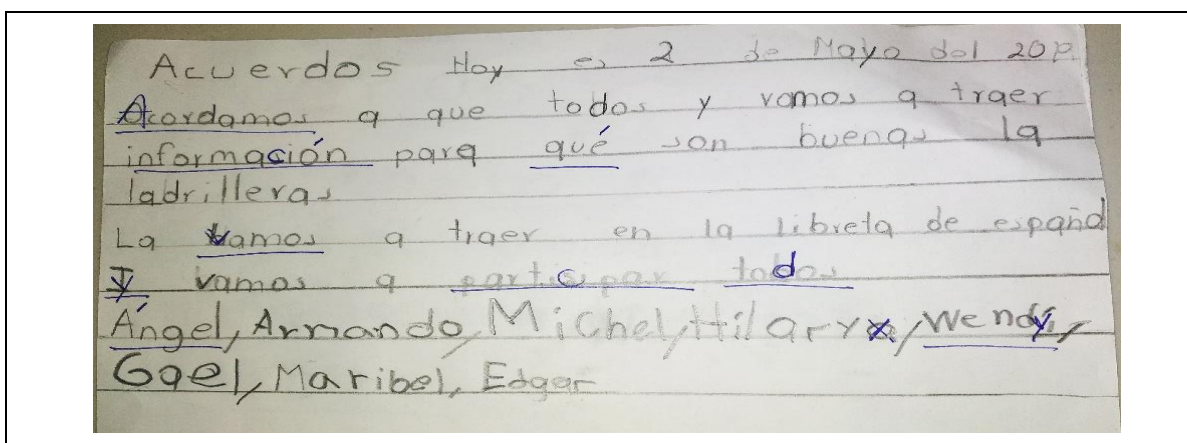 Acuerdos Hoy es 2 de Mayo del
Acordamos a que todos y vamos a traer
información para qué son buenas la
ladrilleras
La vamos a traer en la libreta de español
Y vamos a participar todos
Ángel, Armando, Michel, Hilary, Wendy,
Gael, Maribel, Edgar